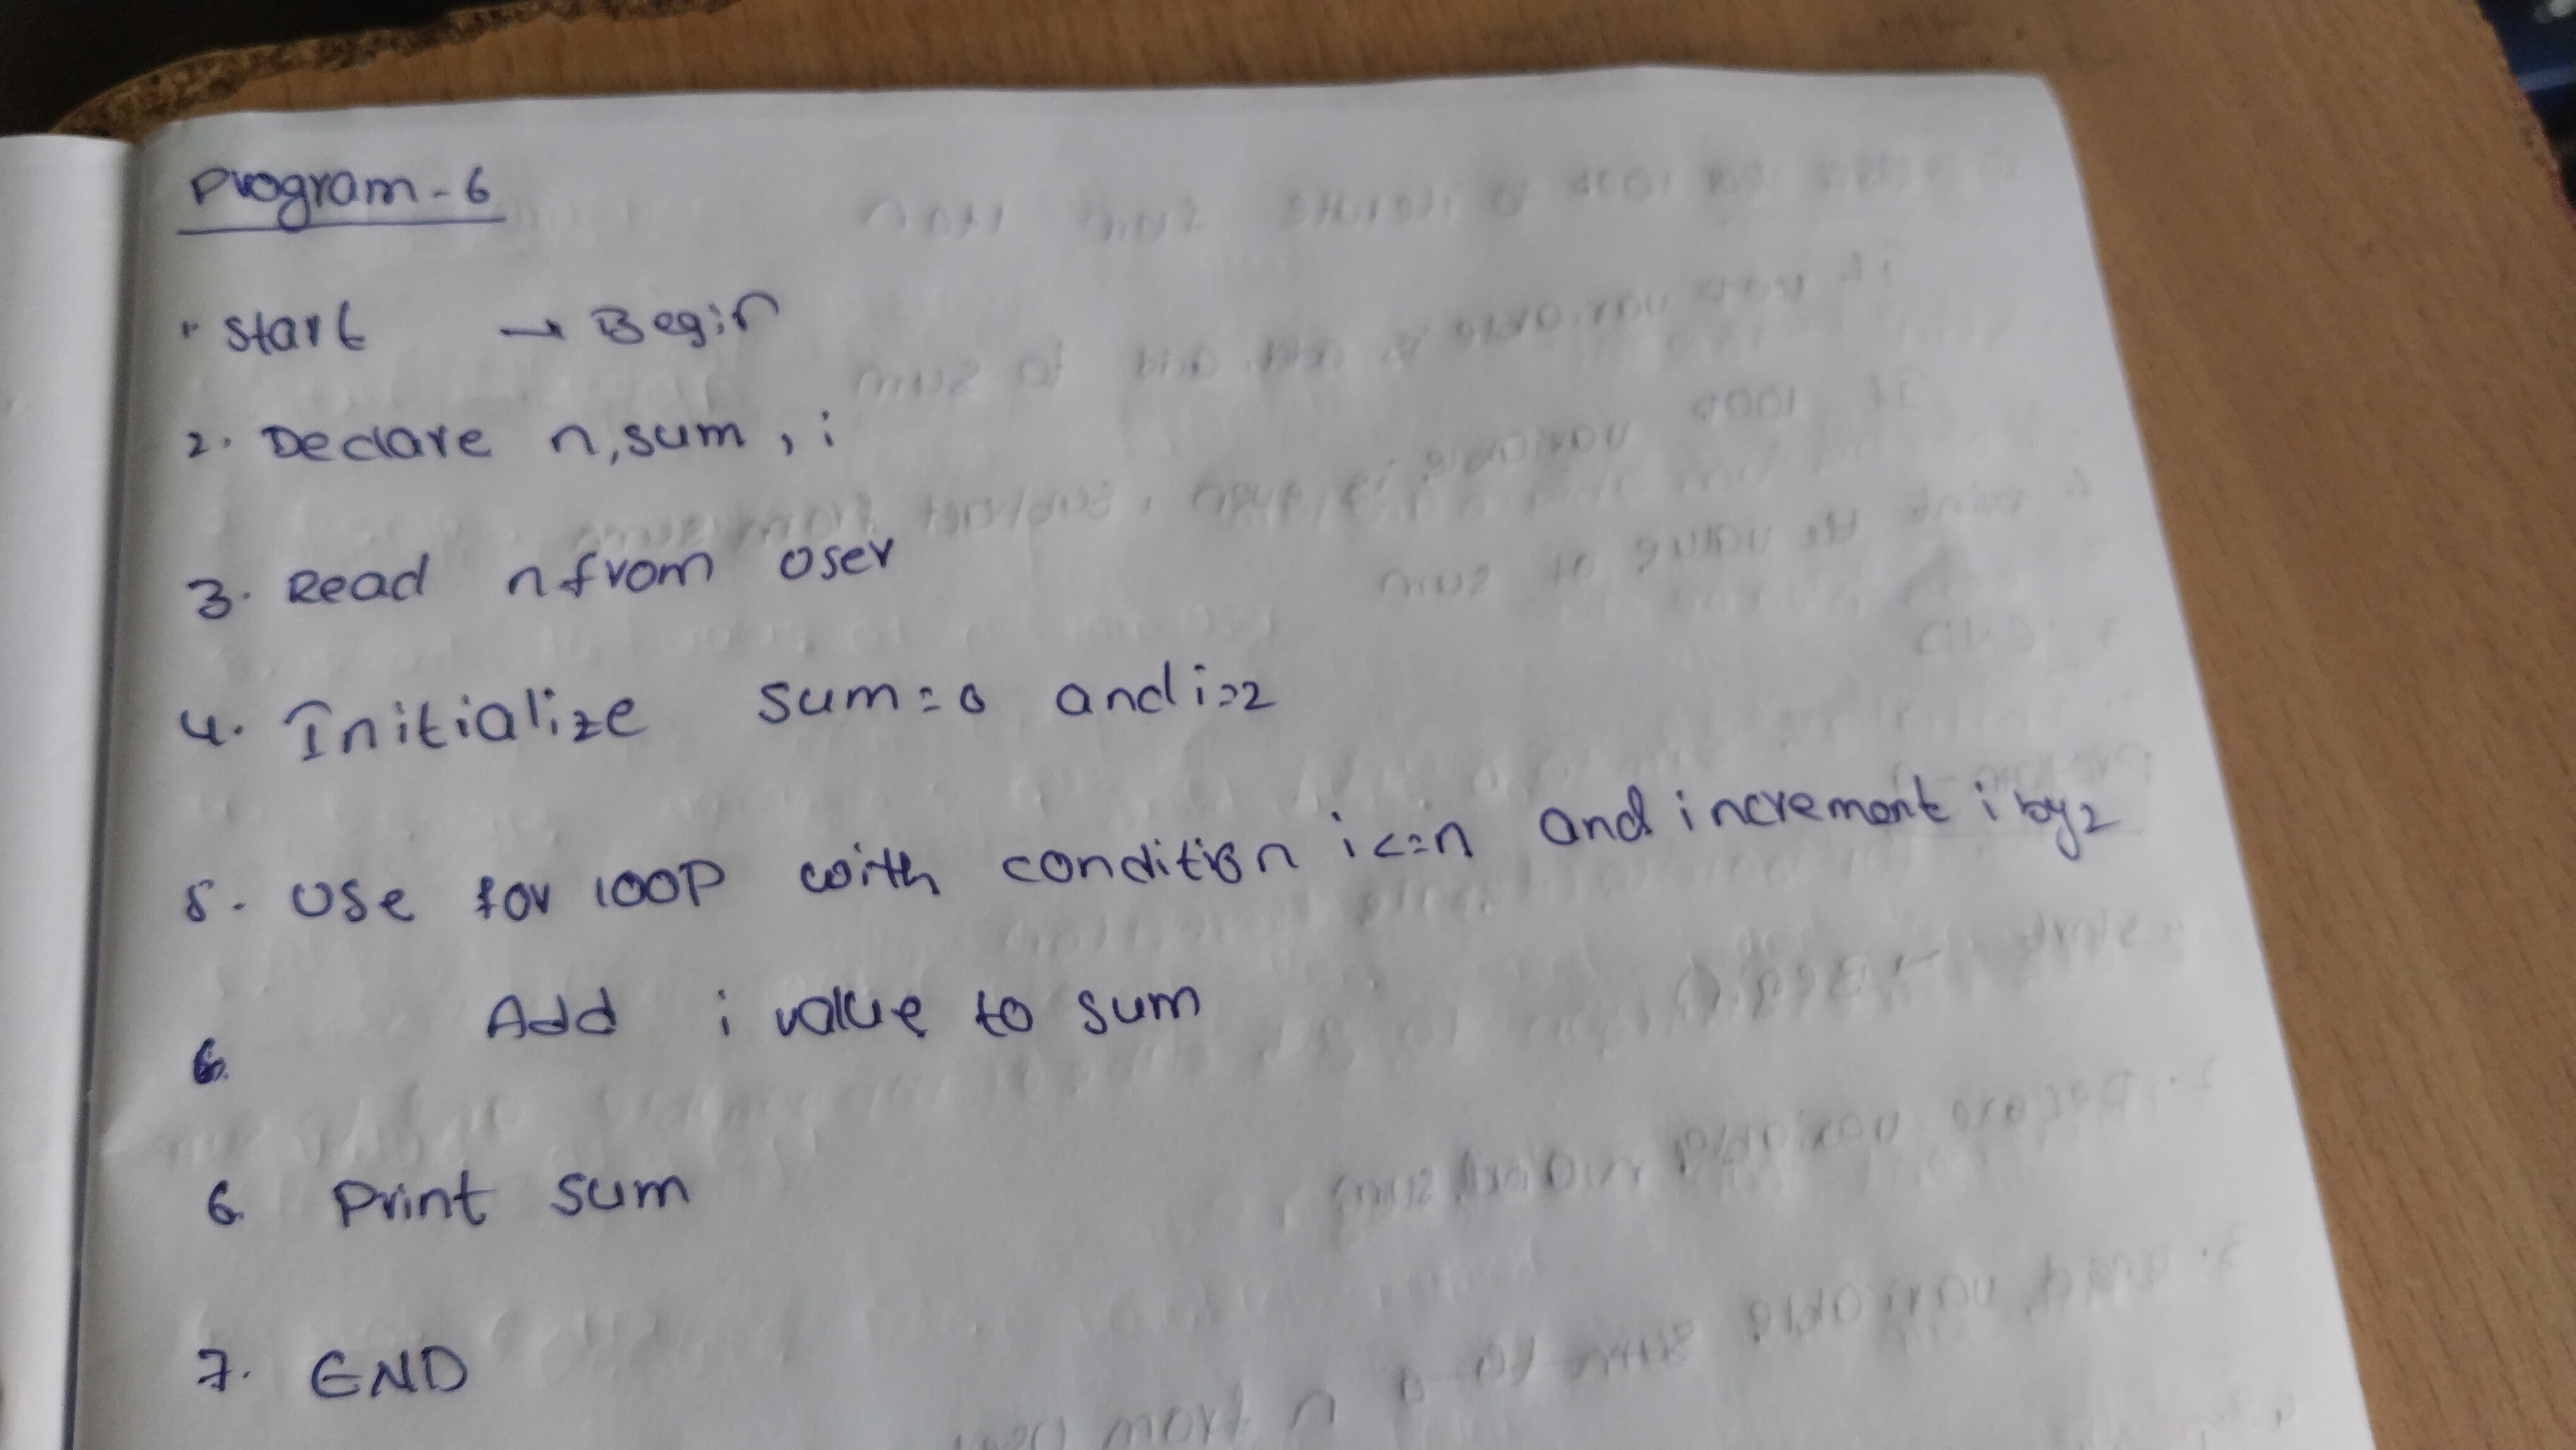 Program-6
1. Start → Begin
2. Declare n, sum, i
3. Read n from user
4. Initialize sum=0 and i=2
5. Use for loop with condition i<=n and increment i by 2
Add i value to sum
6.
6. Print sum
7. END